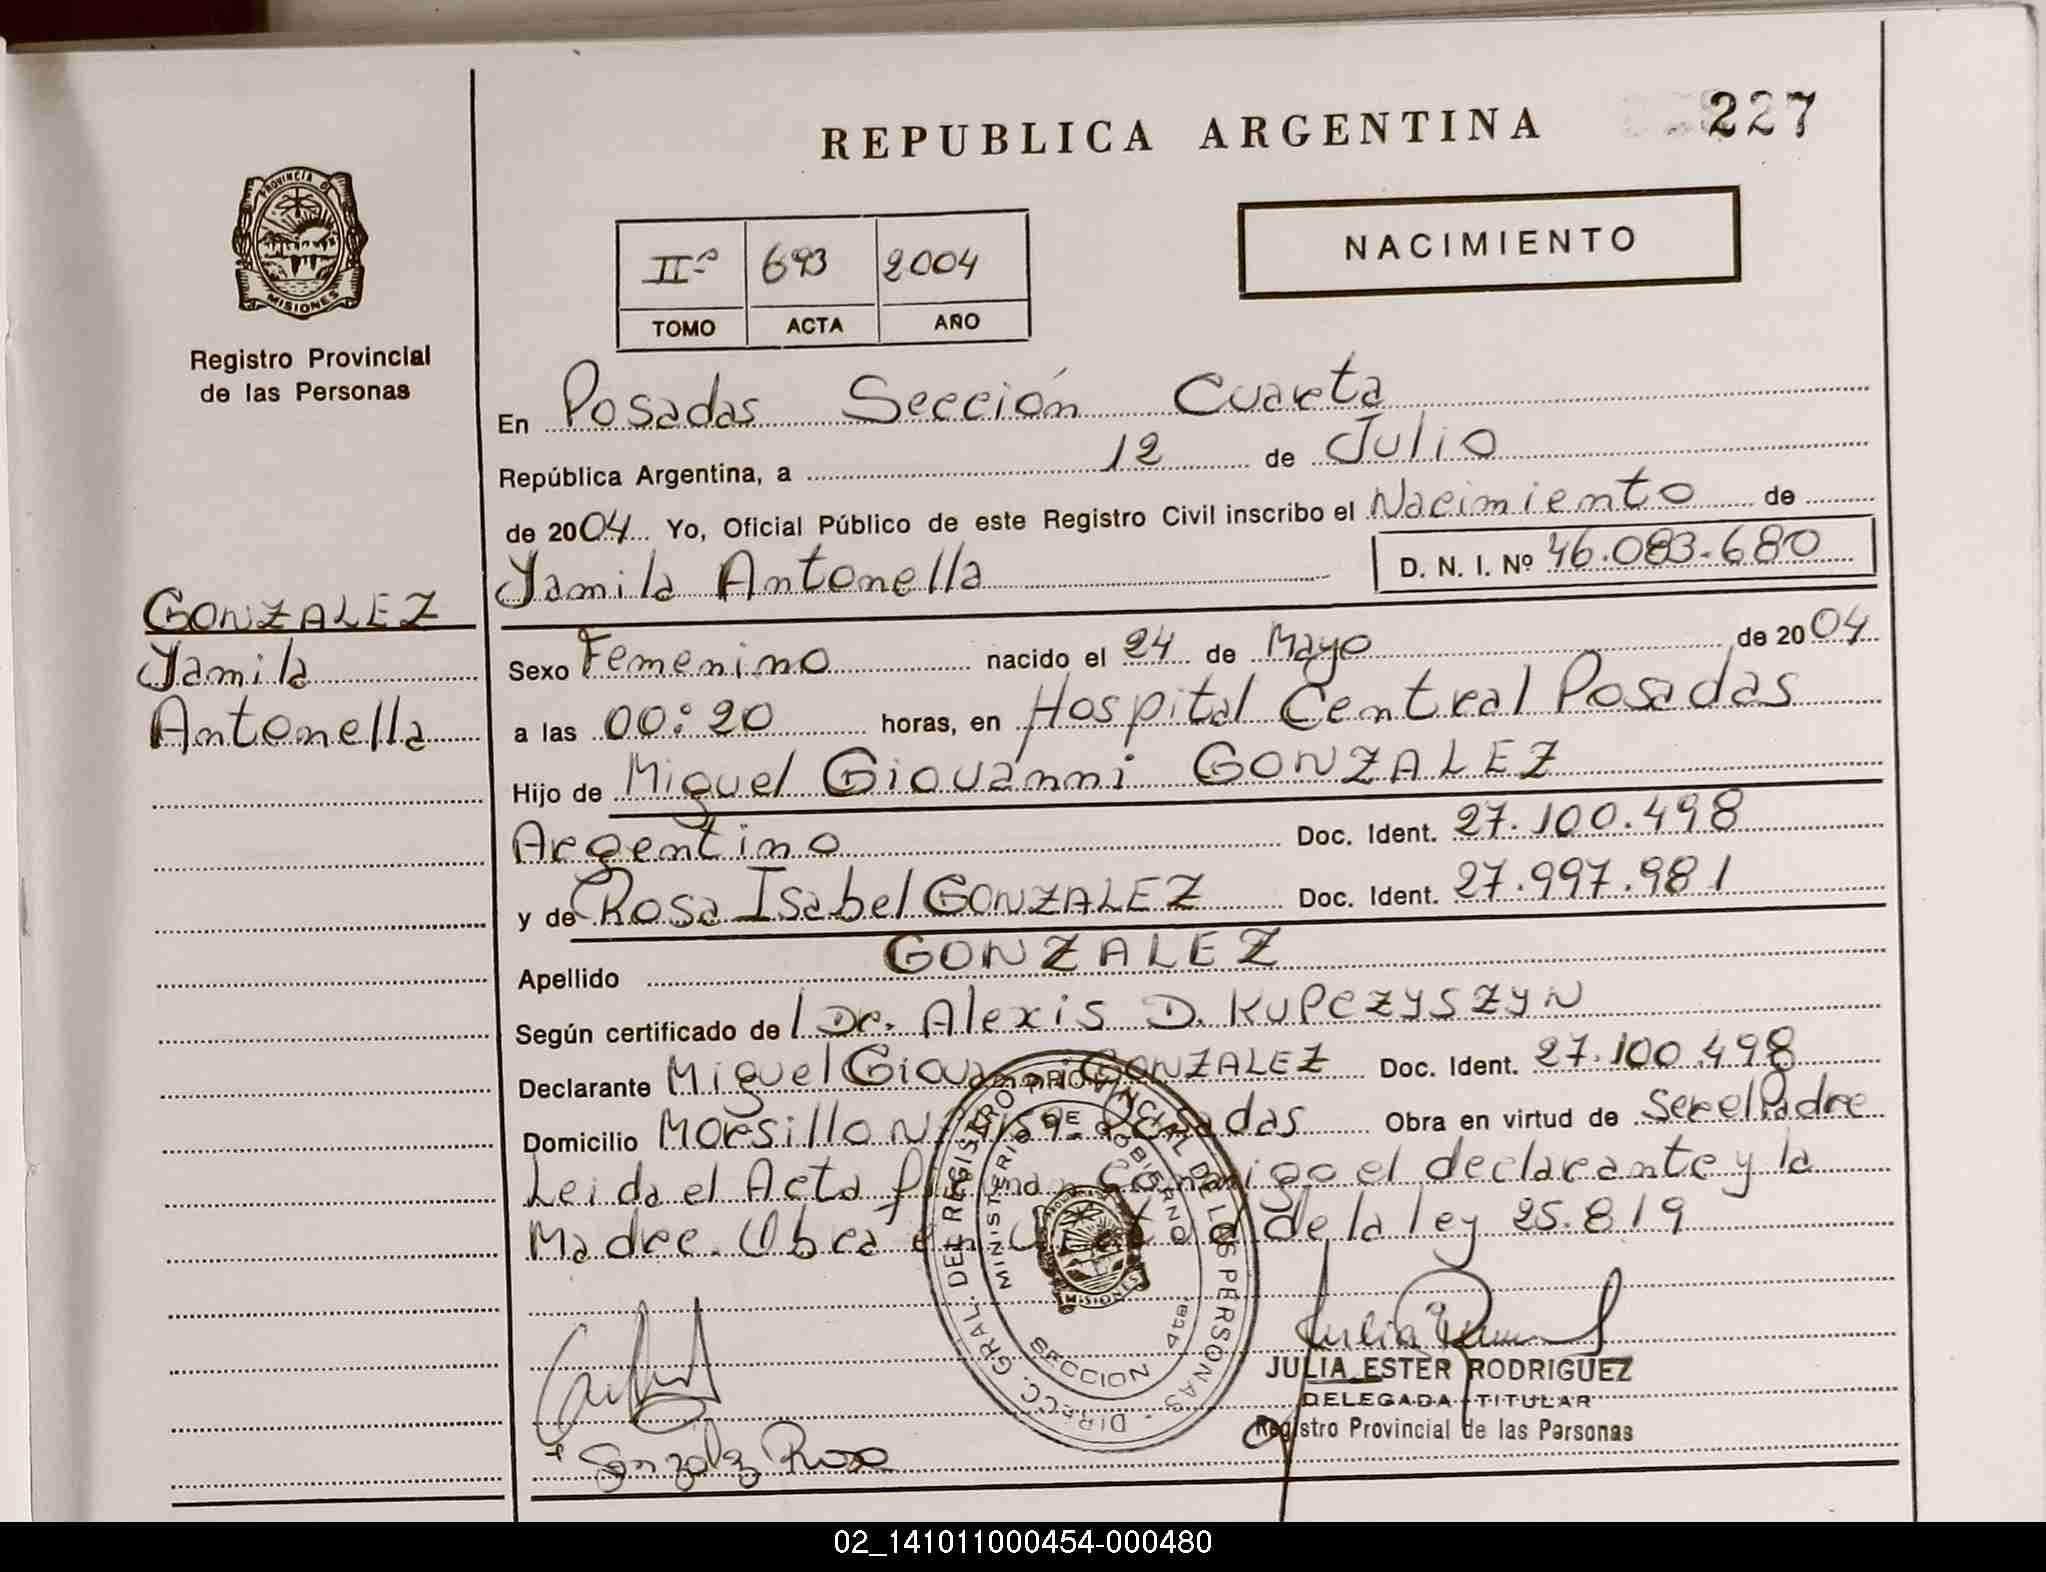 REPUBLICA ARGENTINA
227
PROVINCIA DE
MISIONES
Registro Provincial
de las Personas
IIº 693 2004
TOMO ACTA AÑO
NACIMIENTO
En Posadas Sección Cuarta
República Argentina, a 12 de Julio
de 2004 Yo, Oficial Público de este Registro Civil inscribo el Nacimiento de
Yamila Antonella D. N. I. Nº 46.083.680
GONZALEZ
Yamila
Antonella
Sexo Femenino nacido el 24 de Mayo de 2004
a las 00:20 horas, en Hospital Central Posadas
Hijo de Miguel Giovanni GONZALEZ
Argentino Doc. Ident. 27.100.498
y de Rosa Isabel GONZALEZ Doc. Ident. 27.997.981
Apellido GONZALEZ
Según certificado de Dr. Alexis D. KUPCZYSZYN
Declarante Miguel Giovanni GONZALEZ Doc. Ident. 27.100.498
Domicilio Morsillo Nº 4159 Posadas Obra en virtud de Ser el Padre
Leida el Acta firman conmigo el declarante y la
Madre. Obra en de la ley 25.819
DIRECC. GRAL. DEL REGISTRO PROVINCIAL DE LAS PERSONAS
MINISTERIO DE GOBIERNO
MISIONES
SECCION 4ta.
JULIA ESTER RODRIGUEZ
DELEGADA TITULAR
Registro Provincial de las Personas
Gonzalez Rosa
02_141011000454-000480